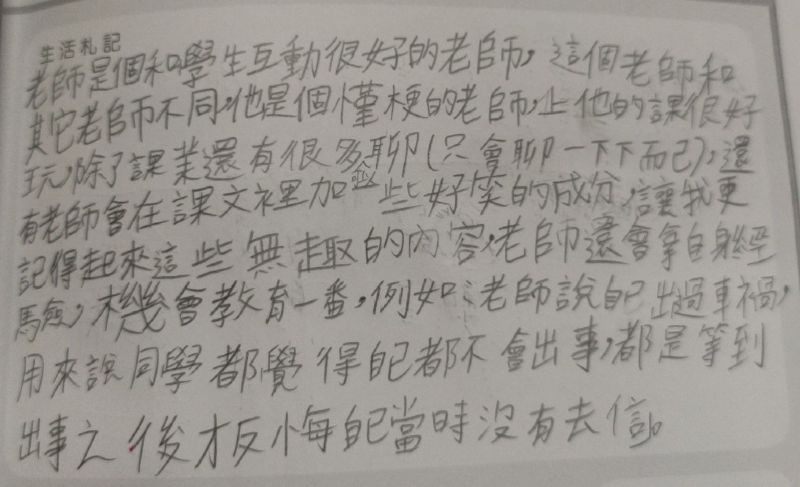 生活札記
老師是個和學生互動很好的老師，這個老師和
其它老師不同，他是個懂梗的老師，上他的課很好
玩，除了課業還有很多聊(只會聊一下下而已)，還
有老師會在課文裡加一些好笑的成分，讓我更
記得起來這些無趣的內容，老師還會拿自身經
驗，機會教育一番，例如：老師說自己出過車禍，
用來說同學都覺得自己都不會出事，都是等到
出事之後才反悔自己當時沒有去信。